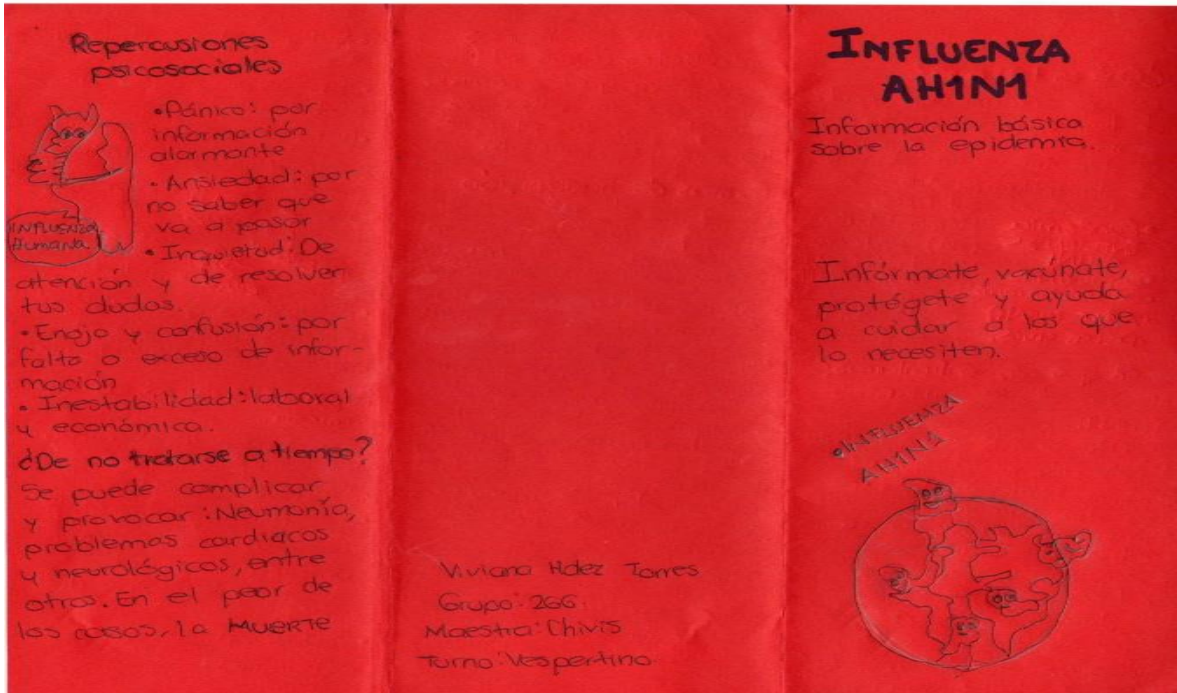 Repercusiones
psicosociales
•Pánico: por
información
alarmante
• Ansiedad: por
no saber que
va a pasar
• Inquietud: De
atención y de resolver
tus dudas.
• Enojo y confusión: por
falta o exceso de infor-
mación
• Inestabilidad: laboral
y económica.
¿De no tratarse a tiempo?
Se puede complicar
y provocar: Neumonía,
problemas cardiacos
y neurológicos, entre
otros. En el peor de
los casos, la MUERTE
INFLUENZA
Humana
Viviana Hdez Torres
Grupo: 266
Maestra: Chivis
Turno: Vespertino
INFLUENZA
AH1N1
Información básica
sobre la epidemia.
Infórmate, vacúnate,
protégete y ayuda
a cuidar a los que
lo necesiten.
•INFLUENZA
AH1N1